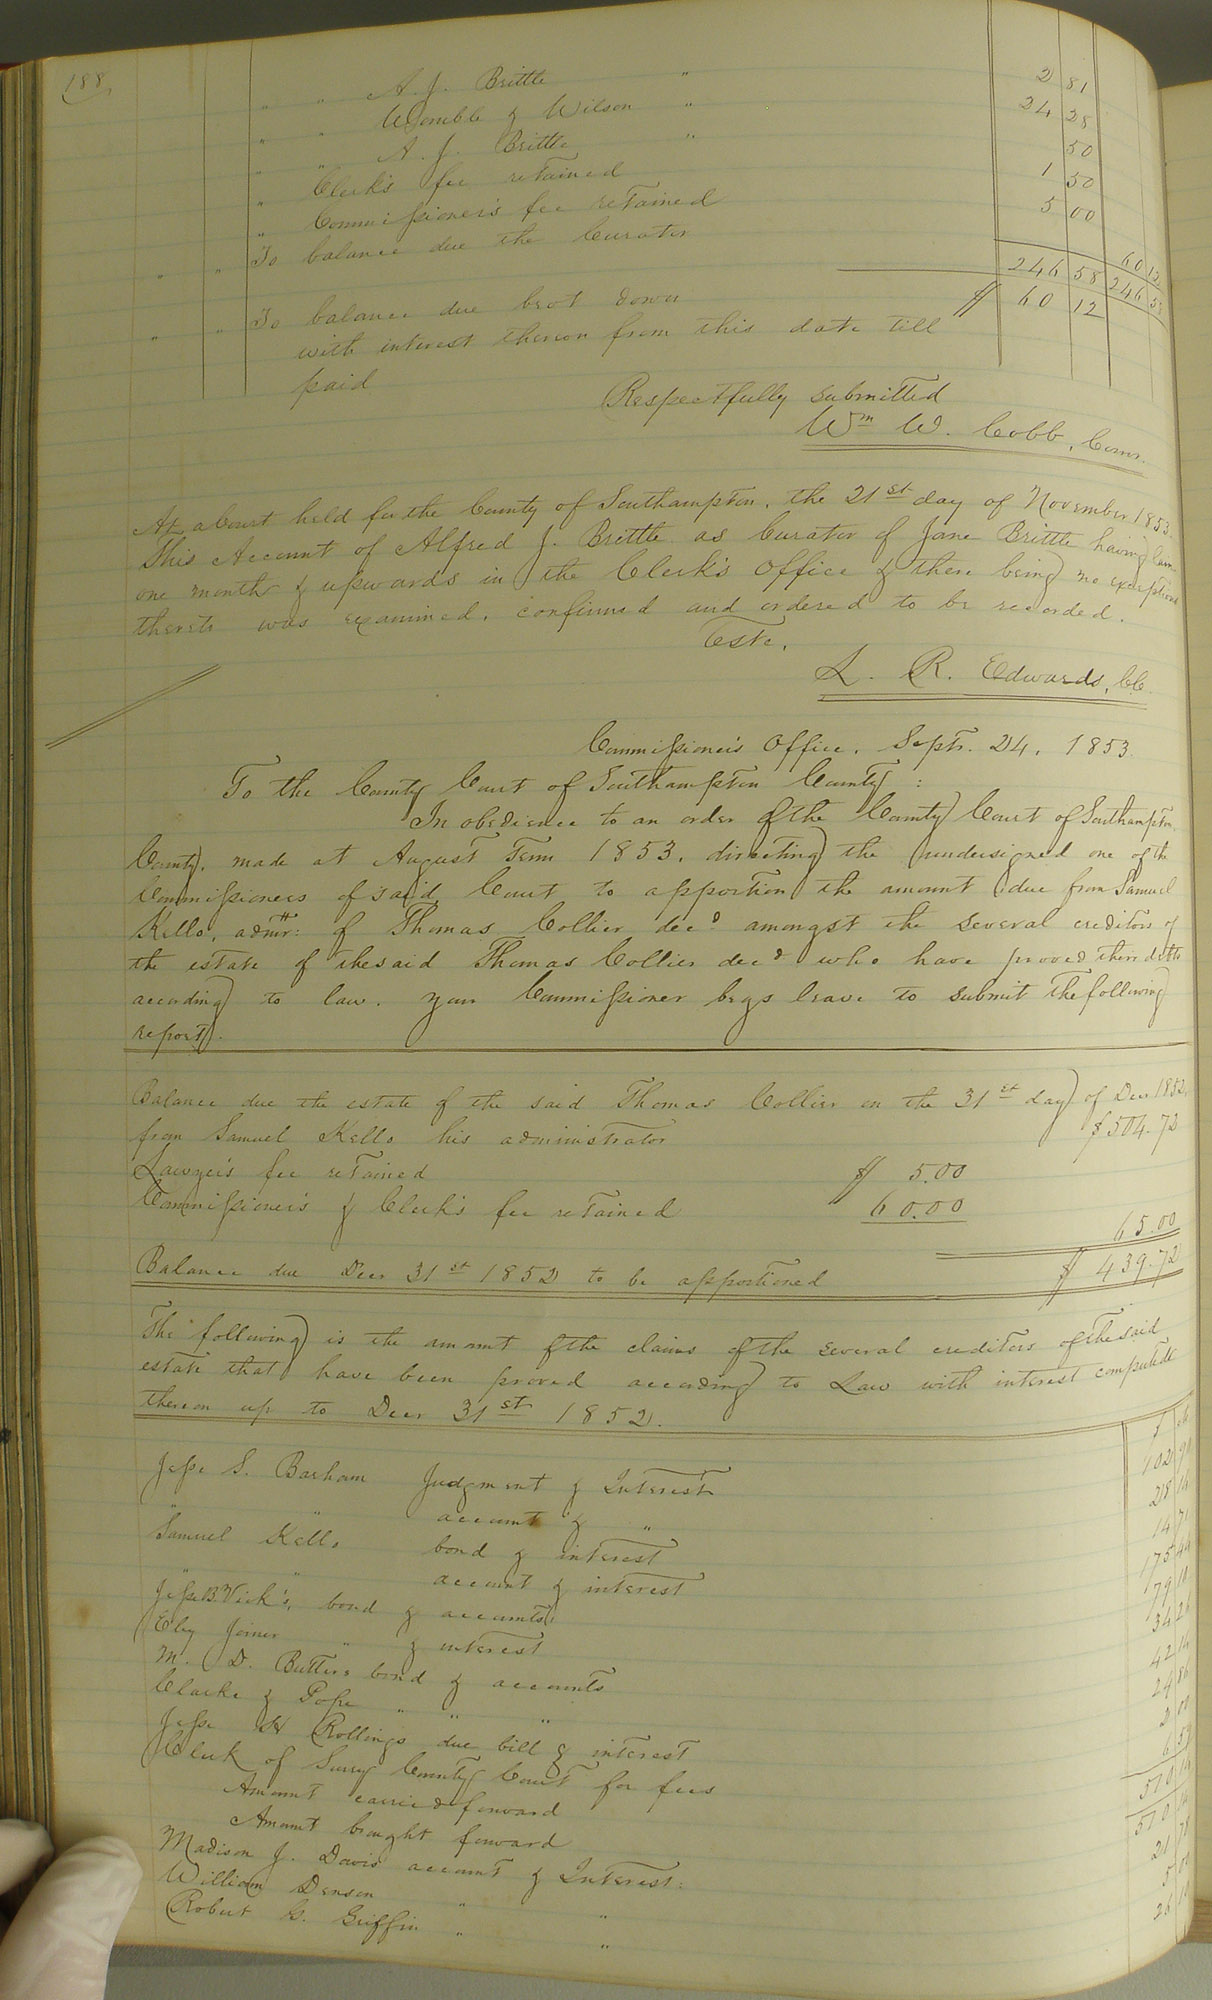 188
" " A. J. Brittle " 2 81
" " Womble & Wilson " 24 28
" " A. J. Brittle " 50
" Clerk's fee retained 1 50
" Commissioner's fee retained 5 00
" " To balance due the Curator 60 12
246 58 246 58
" " To balance due brot down $ 60 12
with interest thereon from this date till
paid
Respectfully submitted
Wm W. Cobb, Comr.
At a Court held for the County of Southampton, the 21st day of November 1853.
This Account of Alfred J. Brittle as Curator of Jane Brittle having lain
one month & upwards in the Clerk's Office & there being no exceptions
thereto was examined, confirmed and ordered to be recorded.
Teste,
L. R. Edwards, C.C.
Commissioner's Office, Septr. 24, 1853.
To the County Court of Southampton County :
In obedience to an order of the County Court of Southampton
County, made at August Term 1853, directing the undersigned one of the
Commissioners of said Court to apportion the amount due from Samuel
Kello, admr: of Thomas Collier decd amongst the several creditors of
the estate of the said Thomas Collier decd who have proved there debts
according to law. Your Commissioner begs leave to submit the following
report.
Balance due the estate of the said Thomas Collier on the 31st day of Decr 1852,
from Samuel Kello his administrator $504.72
Lawyer's fee retained $ 5.00
Commissioner's & Clerk's fee retained 60.00 65.00
Balance due Decr 31st 1852 to be apportioned $ 439.72
The following is the amount of the claims of the several creditors of the said
estate that have been proved according to Law with interest computed
thereon up to Decr 31st 1852.
Jesse S. Barham Judgment & Interest 102
" " account & " 28
Samuel Kello bond & interest 14
" " account & interest 175
Jesse B. Vick's, bond & accounts 79
Eley Joiner " & interest 34
M. D. Butts bond & accounts 42
Clarke & Pope " " " 24
Jesse W Rollings due bill & interest 2
Clerk of Surry County Court for fees 6
Amount carried forward 510
Amount brought forward 510
Madison J. Davis account & Interest: 21
William Denson " " 5
Robert G. Griffin " " 26